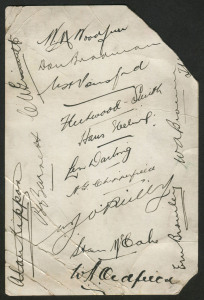 Don Bradman
Fleetwood-Smith
Hans Ebeling
Len Darling
A G Chipperfield
W J O'Reilly
Stan McCabe
W A Oldfield
Alan Kippax
B Barnett
W A Brown
E H Bromley